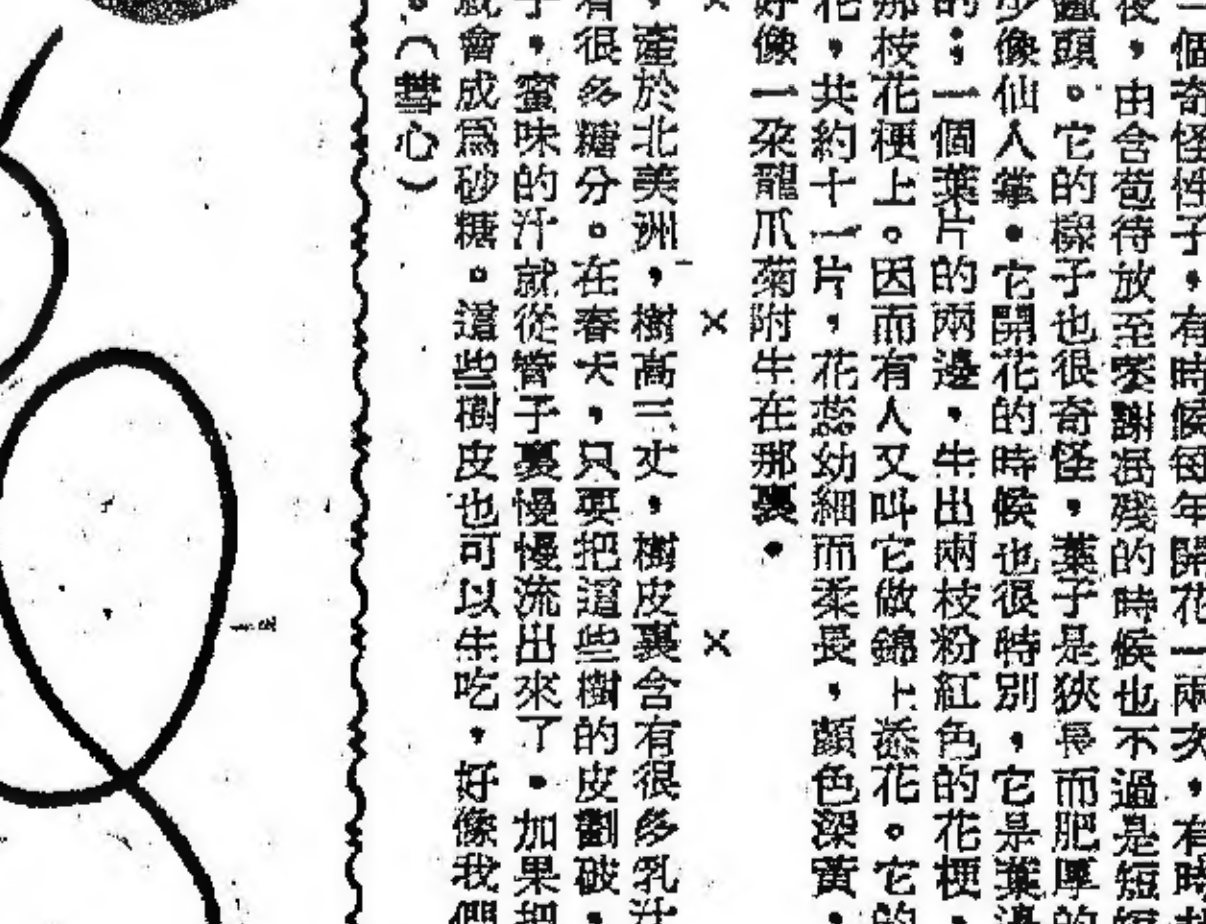 一個奇怪性子，有時候每年開花一兩次，有時
夜，由含苞待放至謝凋殘的時候也不過是短
頭。它的樣子也很奇怪，葉子是狹長而肥厚的
少像仙人掌。它開花的時候也很特別，它是葉邊
的；一個葉片的兩邊，生出兩枝粉紅色的花梗，
那枝花梗上。因而有人又叫它做錦上添花。它的
花，共約十一片，花蕊幼細而柔長，顏色深黃，
好像一朶龍爪菊附生在那裏。
× × ×
，產於北美洲，樹高三丈，樹皮裏含有很多乳汁
有很多糖分。在春天，只要把這些樹的皮劃破，
子，蜜味的汁就從管子裏慢慢流出來了。如果把
就會成爲砂糖。這些樹皮也可以生吃，好像我們
。（彗心）